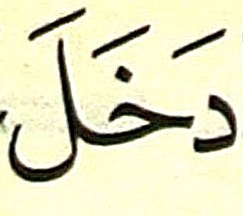 دَخَلَ